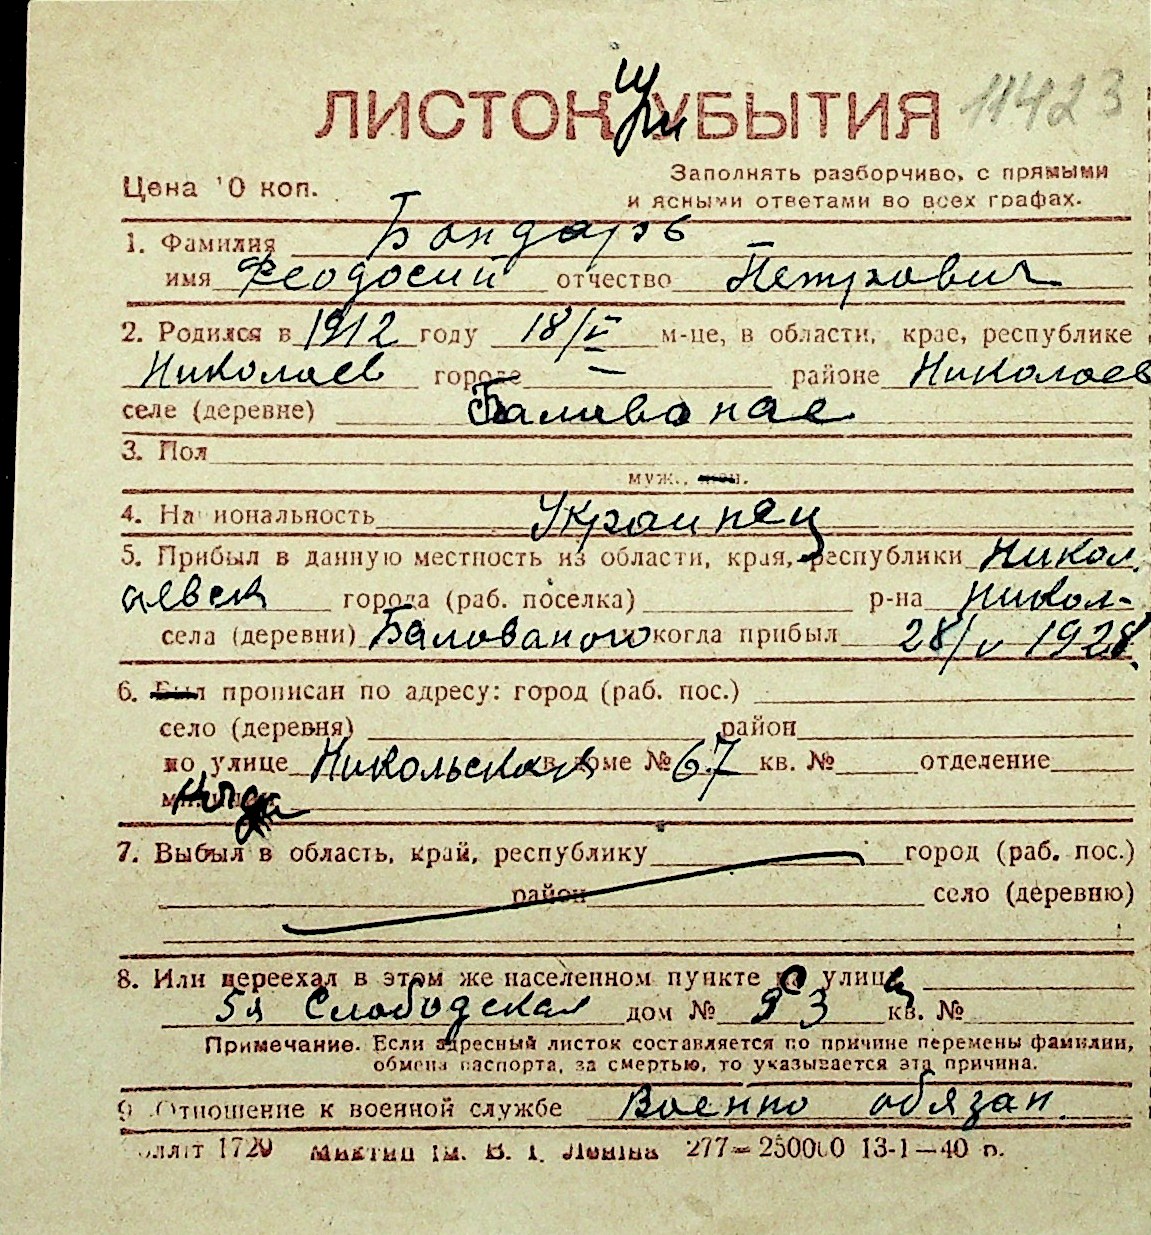 ЛИСТОК при УБЫТИЯ 11423
Цена 10 коп.
Заполнять разборчиво, с прямыми
и ясными ответами во всех графах.
1. Фамилия Бондарь
имя Феодосий отчество Петрович
2. Родился в 1912 году 18/V м-це, в области, крае, республике
Николаев городе — районе Николаев
селе (деревне)
3. Пол
муж., жен.
4. Национальность Украинец
5. Прибыл в данную местность из области, края, республики Никол.
аевск города (раб. поселка) р-на Никол-
села (деревни) Балованого когда прибыл 28/V 1928
6. Был прописан по адресу: город (раб. пос.)
село (деревня) район
по улице Никольская в доме № 67 кв. № отделение
милиции
7. Выбыл в область, край, республику город (раб. пос.)
район село (деревню)
8. Или переехал в этом же населенном пункте с улицы
5я Слободская дом № 93 кв. №
Примечание. Если адресный листок составляется по причине перемены фамилии,
обмена паспорта, за смертью, то указывается эта причина.
9. Отношение к военной службе Военно обязан.
1720 Ім. В. І. Леніна 277—250000 13-1—40 р.